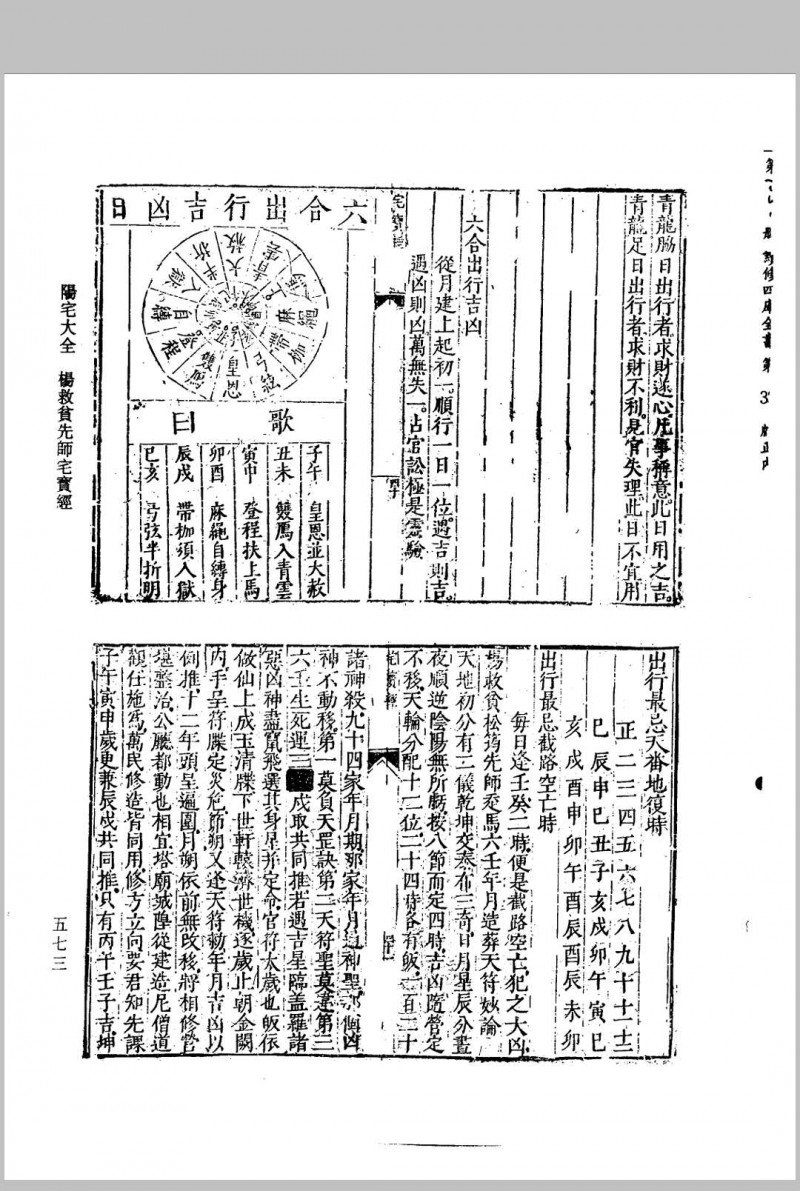 青龍脇日出行者求財遂心凡事稱意此日用之吉
青龍足日出行者求財不利見官失理此日不宜用
六合出行吉凶
從月建上起初一順行一日一位遇吉則吉
遇凶則凶萬無失一占官訟極是靈驗
宅寶經
六合出行吉凶日
皇恩
大赦
雙鴈
青雲
登程
上馬
麻繩
自縛
枷
入獄
弓弦
半折
歌曰
子午 皇恩並大赦
丑未 雙鴈入青雲
寅申 登程扶上馬
卯酉 麻繩自縛身
辰戌 帶枷須入獄
巳亥 弓弦半折明
出行最忌天番地復時
正二三四五六七八九十十一十二
巳辰申巳丑子亥戌卯午寅巳
亥戌酉申卯午酉辰酉辰未卯
出行最忌截路空亡時
每日逢壬癸二時便是截路空亡犯之大凶
楊救貧松筠先師乘馬六壬年月造葬天符妙論
天地初分有二儀乾坤交泰布三奇日月星辰分晝
夜順逆陰陽無所虧按八節而定四時吉凶隨營定
不移天輪分配十二位二十四時各有皈一百二十
宅寶經
諸神殺九十四家年月期那家年月道神聖
神不動移第一莫負天罡訣第二天符聖莫違第三
六壬生死運三戊取共同推若遇吉星臨盖羅諸
惡凶神盡竄飛選其身星并定命官符太歲也皈依
做仙上成玉清牒下世軒轅濟世機逐歲止朝金闕
内手呈符牒定災危節朔又逢天符勑年月吉凶以
倒推十二年頭呈遍圍月朔依前無改移將相修營
堪整治公廳都動也相宜塔廟城隍從建造尼僧道
觀任施爲萬民修造皆同用修方立向要君知先課
子午寅申歲更兼辰戌共同推只有丙午壬子吉坤
陽宅大全 楊救貧先師宅寶經
五七三